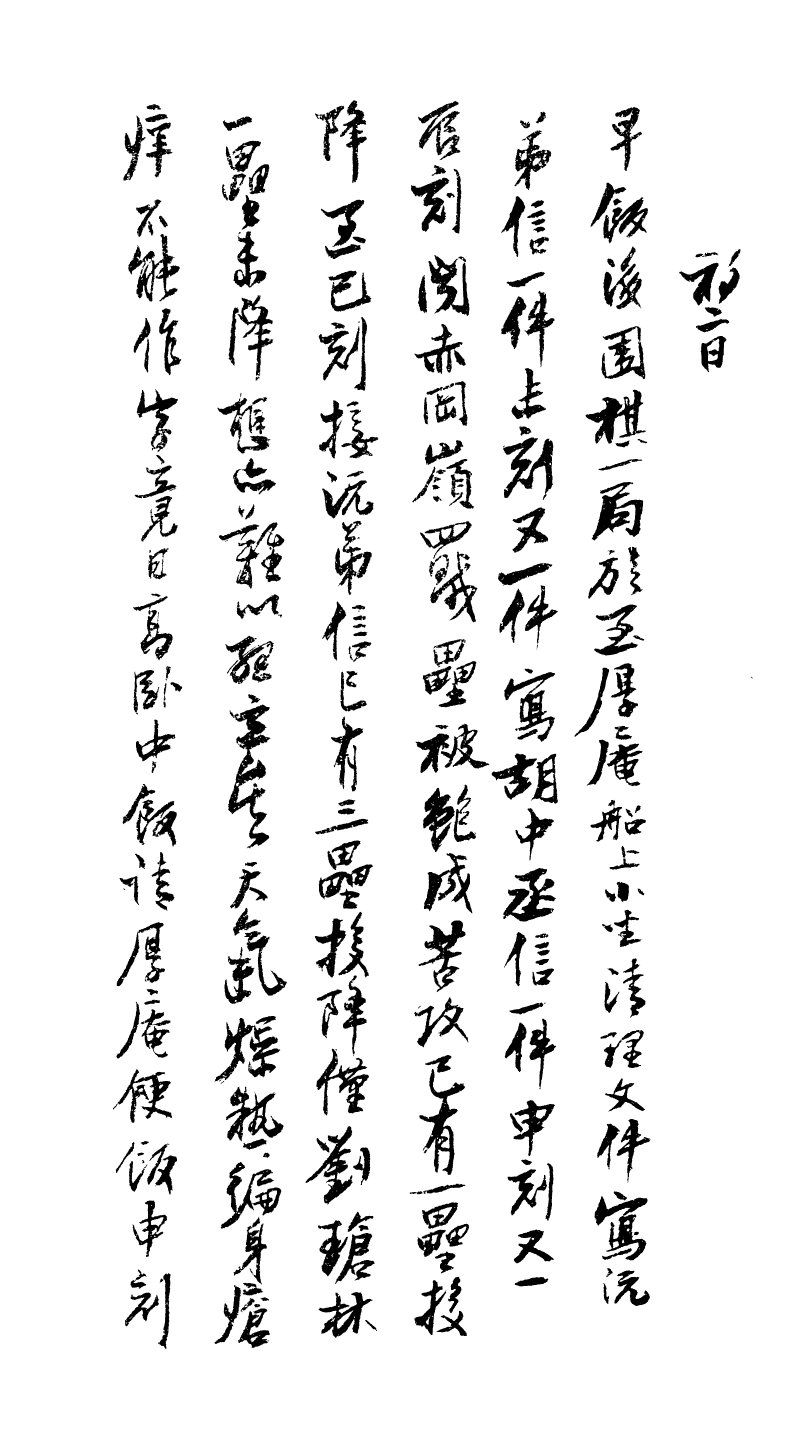 初二日
早飯後圍棋一局旋至厚庵船上小坐清理文件寫沅
弟信一件未刻又一件寫胡中丞信一件申刻又一
辰刻聞赤岡嶺四賊壘被鮑成苦攻已有一壘投
降至已刻接沅弟信已有三壘投降僅劉瑲林
一壘未降想亦難以孤立矣天氣燥熱徧身瘡
癢不能作字竟日高臥中飯請厚庵便飯申刻